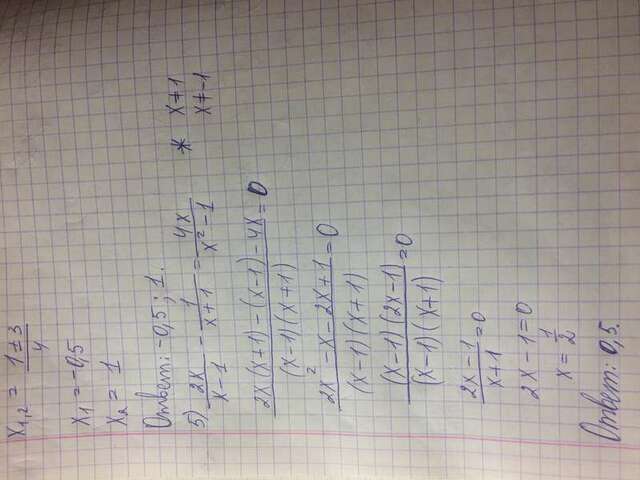 x₁,₂ = (1 ± 3)/4
x₁ = -0,5
x₂ = 1
Ответ: -0,5; 1.
5) 2x/(x-1) - 1/(x+1) = 4x/(x²-1) * x≠1
x≠-1
(2x(x+1) - (x-1) - 4x)/((x-1)(x+1)) = 0
(2x² - x - 2x + 1)/((x-1)(x+1)) = 0
((x-1)(2x-1))/((x-1)(x+1)) = 0
(2x-1)/(x+1) = 0
2x - 1 = 0
x = 1/2
Ответ: 0,5.